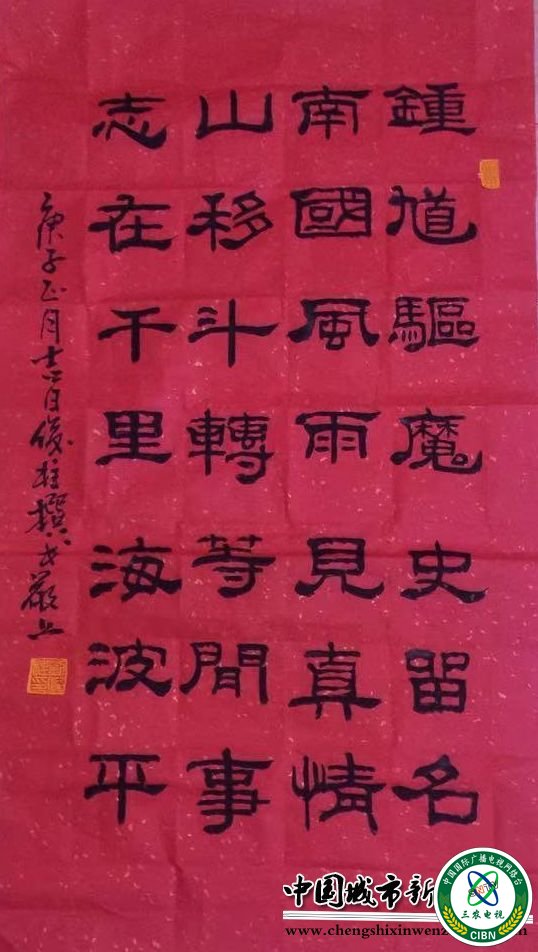 鍾馗驅魔史留名
南國風雨見真情
山移斗轉等閒事
志在千里海波平
庚子正月十六日俊柱撰
中国城市新
www.chengshixinwen
中国国际广播电视网络台
三农电视
CIBN